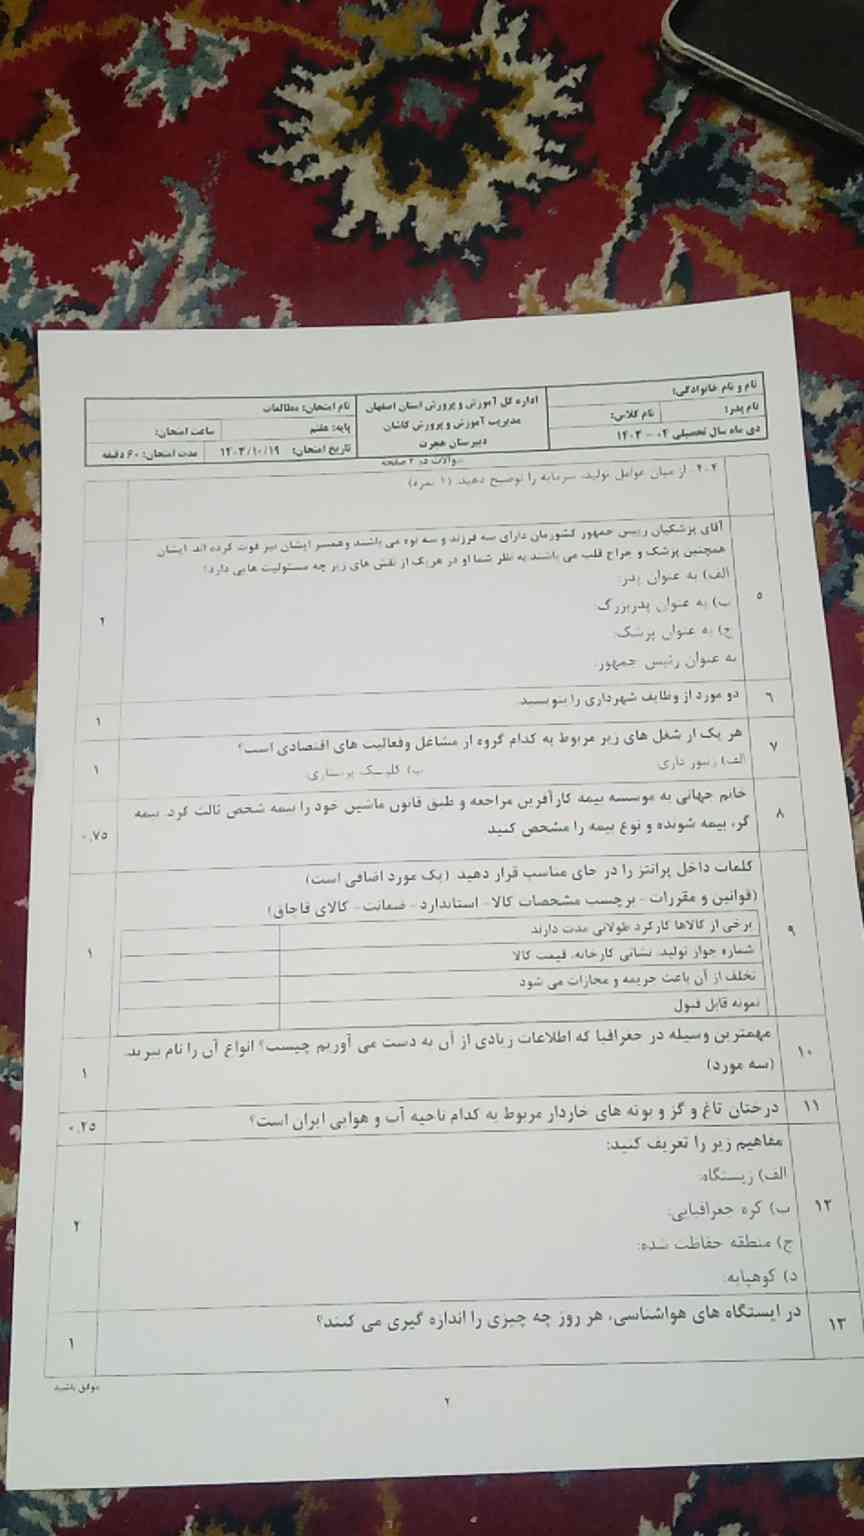 نام و نام خانوادگی:
نام پدر:
نام کلاس:
دی ماه سال تحصیلی ۰۴ - ۱۴۰۳
اداره کل آموزش و پرورش استان اصفهان
مدیریت آموزش و پرورش کاشان
دبیرستان هجرت
نام امتحان: مطالعات
پایه: هفتم
ساعت امتحان:
تاریخ امتحان: ۱۴۰۳/۱۰/۱۹
مدت امتحان: ۶۰ دقیقه
سوالات در ۲ صفحه
۴.۲. از میان عوامل تولید، سرمایه را توضیح دهید. (۱ نمره)
۵
آقای پزشکیان رییس جمهور کشورمان دارای سه فرزند و سه نوه می باشند و همسر ایشان نیز فوت کرده اند. ایشان
همچنین پزشک و جراح قلب می باشند به نظر شما او در هریک از نقش های زیر چه مسئولیت هایی دارد؟
الف) به عنوان پدر:
ب) به عنوان پدربزرگ:
ج) به عنوان پزشک:
به عنوان رئیس جمهور:
۲
۶ دو مورد از وظایف شهرداری را بنویسید. ۱
۷ هر یک از شغل های زیر مربوط به کدام گروه از مشاغل وفعالیت های اقتصادی است؟
الف) زنبور داری ب) کلینیک پرستاری ۱
۸ خانم جهانی به موسسه بیمه کارآفرین مراجعه و طبق قانون ماشین خود را بیمه شخص ثالث کرد. بیمه
گر، بیمه شونده و نوع بیمه را مشخص کنید ۰.۷۵
۹ کلمات داخل پرانتز را در جای مناسب قرار دهید. (یک مورد اضافی است)
(قوانین و مقررات - برچسب مشخصات کالا - استاندارد - ضمانت - کالای قاچاق)
برخی از کالاها کارکرد طولانی مدت دارند
شماره جواز تولید، نشانی کارخانه، قیمت کالا
تخلف از آن باعث جریمه و مجازات می شود
نمونه قابل قبول
۱
۱۰ مهمترین وسیله در جغرافیا که اطلاعات زیادی از آن به دست می آوریم چیست؟ انواع آن را نام ببرید.
(سه مورد) ۱
۱۱ درختان تاغ و گز و بوته های خاردار مربوط به کدام ناحیه آب و هوایی ایران است؟ ۰.۲۵
۱۲ مفاهیم زیر را تعریف کنید:
الف) زیستگاه:
ب) کره جغرافیایی:
ج) منطقه حفاظت شده:
د) کوهپایه:
۲
۱۳ در ایستگاه های هواشناسی، هر روز چه چیزی را اندازه گیری می کنند؟ ۱
موفق باشید
۲